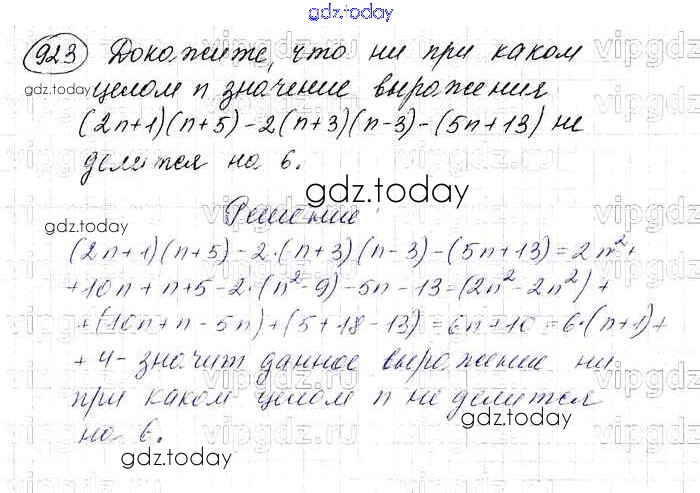 gdz.today
923 Докажите, что ни при каком
целом n значение выражения
gdz.today
(2n+1)(n+5)-2(n+3)(n-3)-(5n+13) не
делится на 6.
gdz.today
gdz.today
Решение:
(2n+1)(n+5)-2·(n+3)(n-3)-(5n+13)=2n²+
+10n+n+5-2·(n²-9)-5n-13=(2n²-2n²)+
+(10n+n-5n)+(5+18-13)=6n+10=6·(n+1)+
+4- значит данное выражение ни
при каком целом n не делится
на 6.
gdz.today
gdz.today
vipgdz.ru